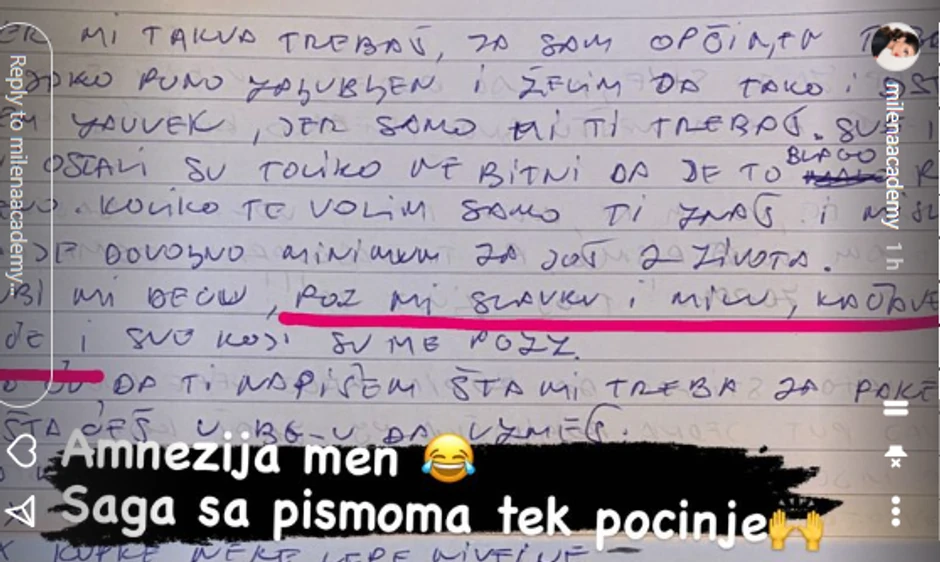 MI TAKVA TREBAŠ, JA SAM OPČINJEN
PUNO ZALJUBLJEN I ŽELIM DA TAKO I OST
ZAUVEK, JER SAMO MI TI TREBAŠ. SVE I
OSTALI SU TOLIKO NE BITNI DA JE TO BLAGO
KOLIKO TE VOLIM SAMO TI ZNAŠ I MISL
JE DOVOLJNO MINIMUM ZA JOŠ 2 ŽIVOTA.
MI DECU, POZ MI SLAVKU I MILU, KAO I AVE
DE I SVE KOJI SU ME POZZ.
DA TI NAPIŠEM ŠTA MI TREBA ZA PAKE
ŠTA ĆEŠ U BG-U DA UZMEŠ.
Amnezija men 😂
Saga sa pismoma tek pocinje🙌
KUPKE NEKE LEPE NIVEINE
Reply to milenaacademy...
milenaacademy 1 h